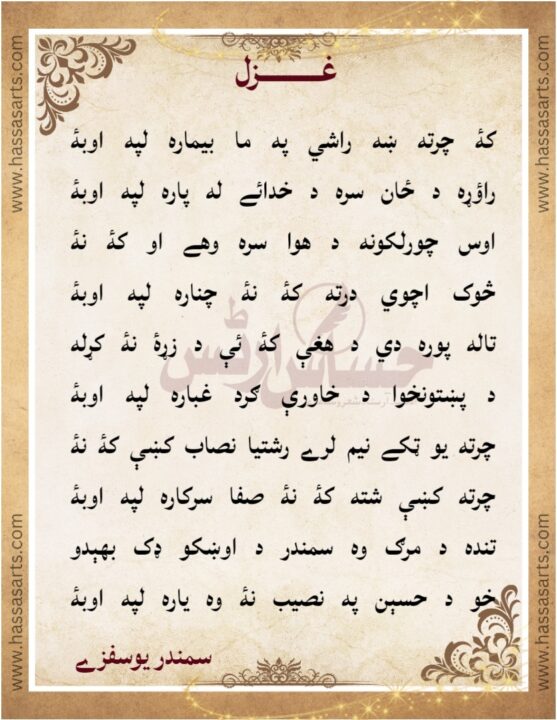 غزل
کهٔ چرته ښه راشي په ما بيماره لپه اوبهٔ
راؤړه د ځان سره د خدائے له پاره لپه اوبهٔ
اوس چورلکونه د هوا سره وهے او کهٔ نهٔ
څوک اچوي درته کهٔ نهٔ چناره لپه اوبهٔ
تاله پوره دي د هغې کهٔ ئې د زړهٔ نهٔ کړله
د پښتونخوا د خاورې ګرد غباره لپه اوبهٔ
چرته يو ټکے نيم لرے رشتيا نصاب کښې کهٔ نهٔ
چرته کښې شته کهٔ نهٔ صفا سرکاره لپه اوبهٔ
تنده د مرګ وه سمندر د اوښکو ډک بهېدو
خو د حسېن په نصيب نهٔ وه ياره لپه اوبهٔ
سمندر يوسفزے
حساس آرٹس
www.hassasarts.com
www.hassasarts.com
www.hassasarts.com
www.hassasarts.com